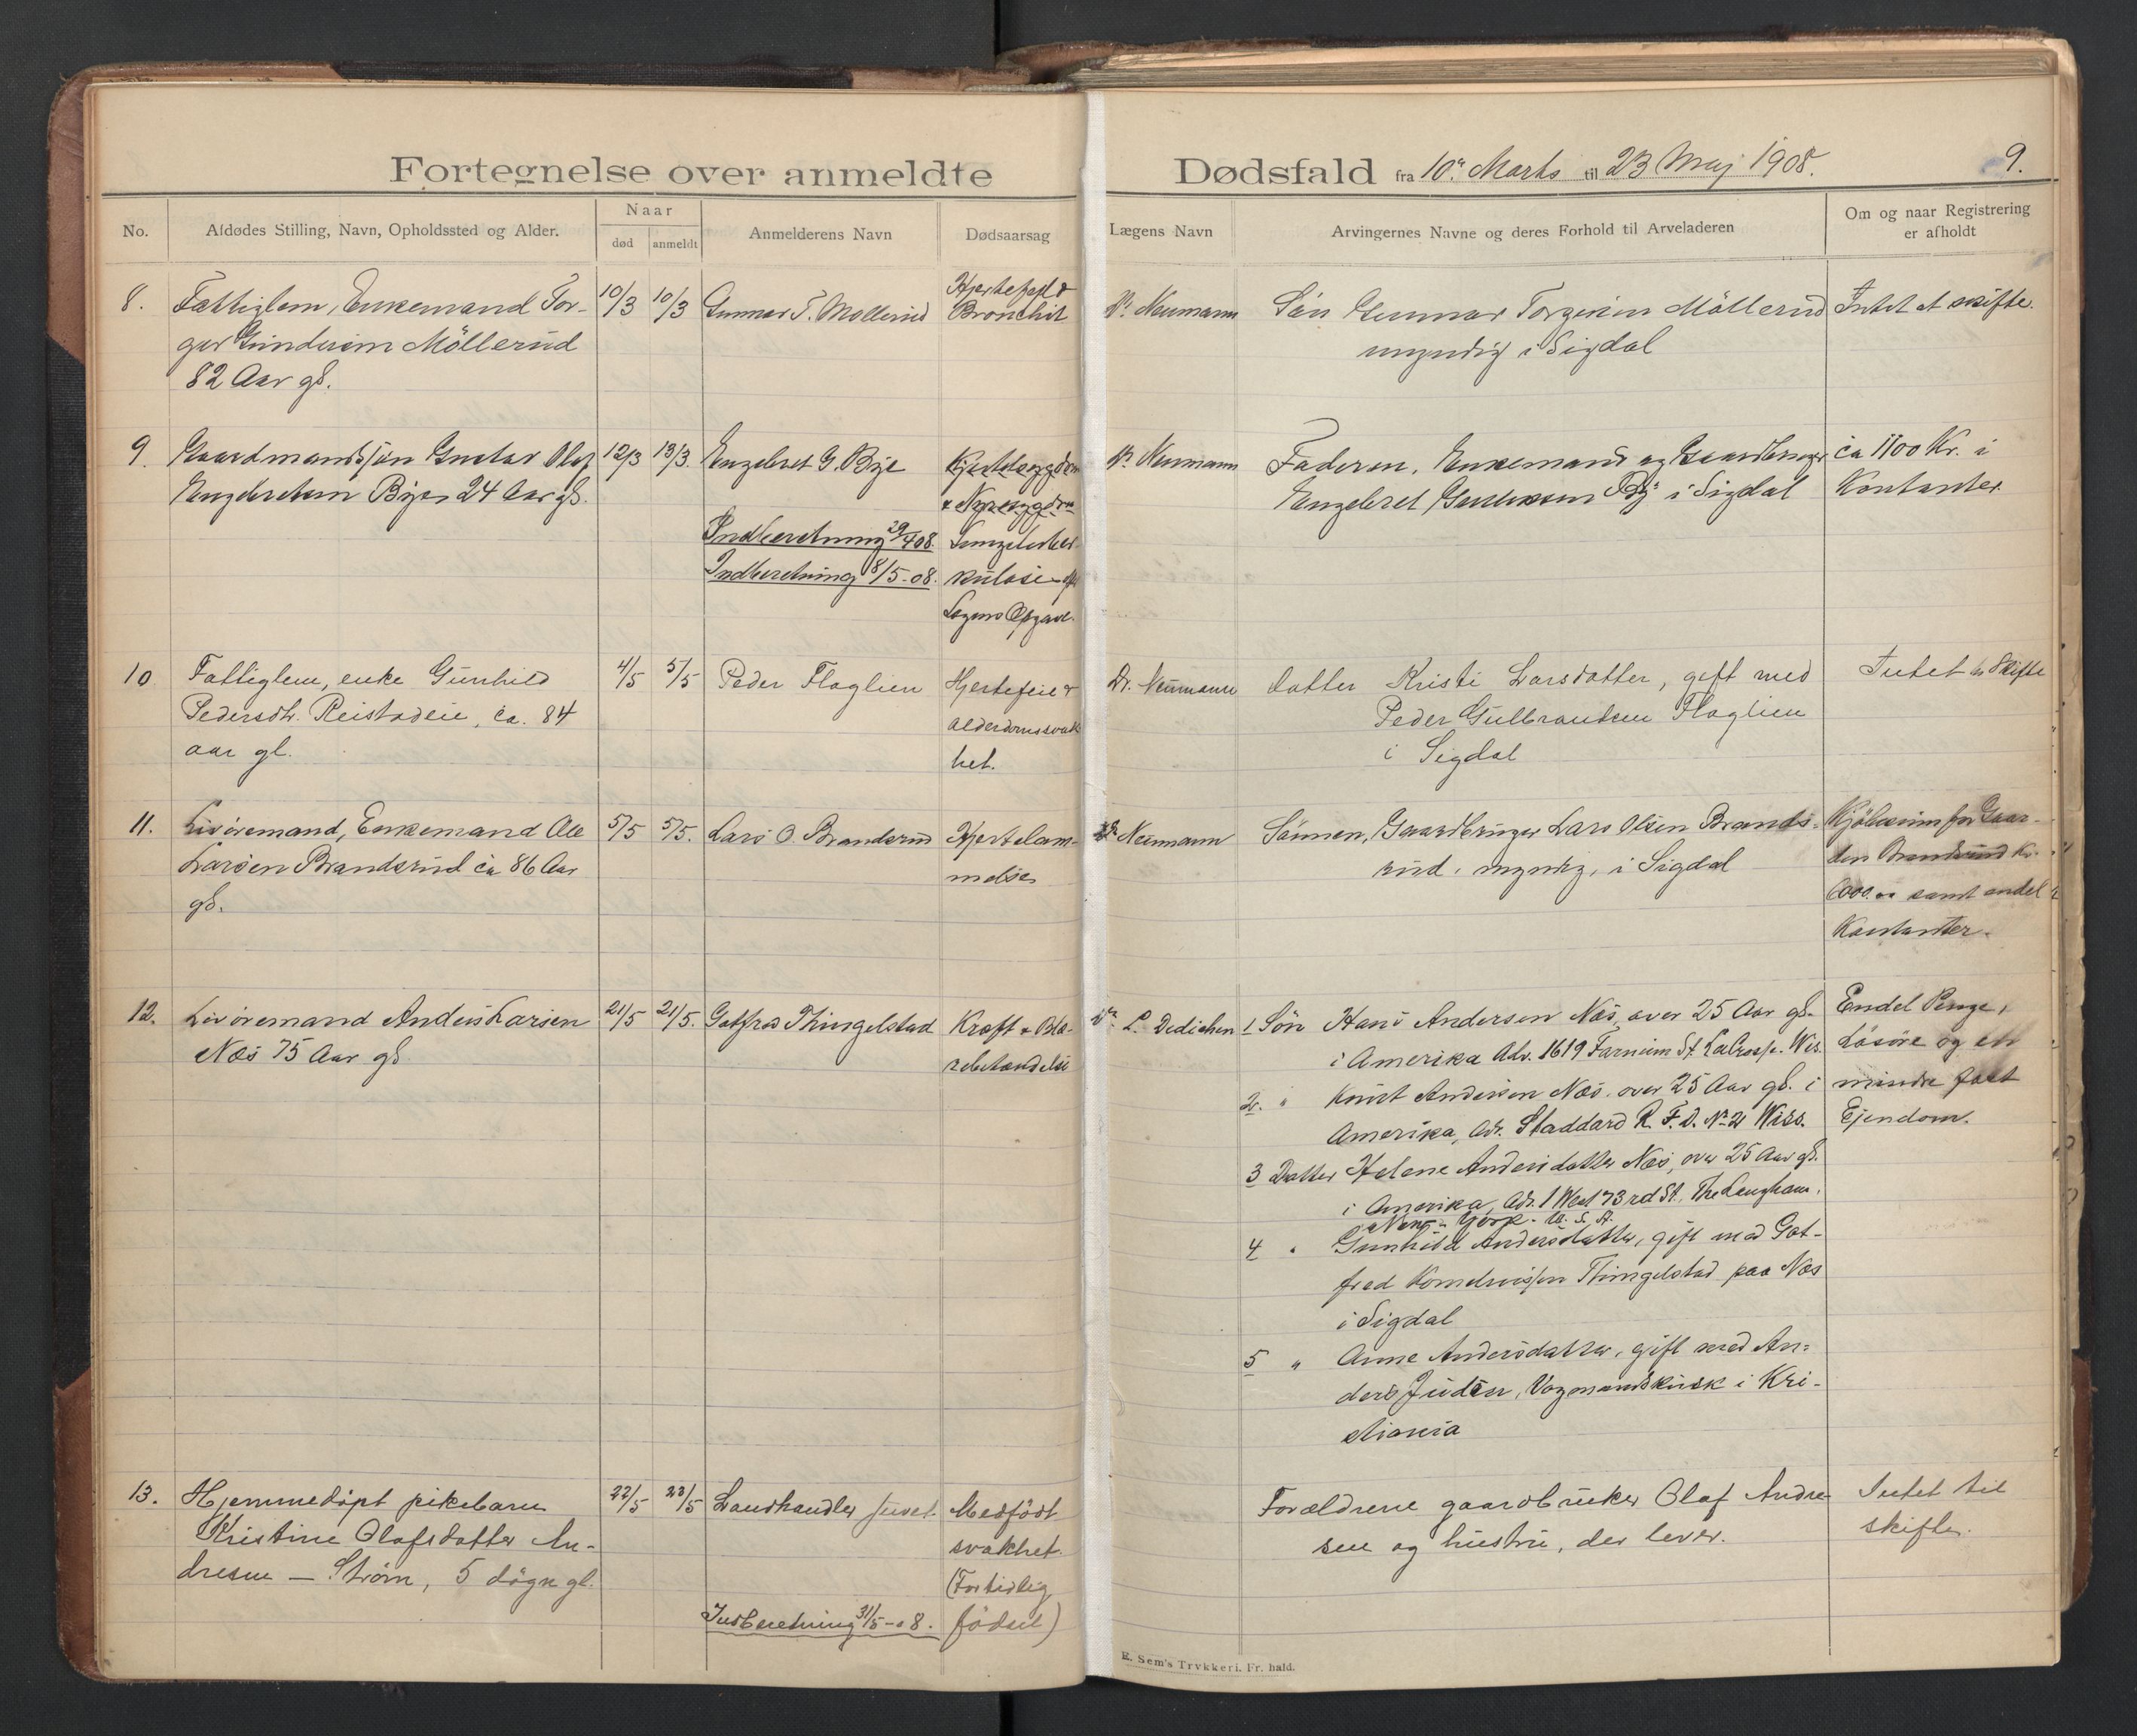 Fortegnelse over anmeldte Dødsfald fra 10de Marts til 23 Maj 1908. 9.
No. Afdødes Stilling, Navn, Opholdssted og Alder. Naar død anmeldt Anmelderens Navn Dødsaarsag Lægens Navn Arvingernes Navne og deres Forhold til Arveladeren Om og naar Registrering er afholdt
8. Fattiglem, Enkemand Tor- 10/3 10/3 Gunnar T. Møllerud Hjertefejl &
ger Møllerud Bronchit
82 Aar gl.
Dr. Neumann Søn Gunnar Torgersen Möllerud Intet at skifte.
myndig i Sigdal
9. Gaardmandssøn Gustav Olaf 12/3 13/3. Engebret G. Bye Hjertesygdom
Engebretsen Bye 24 Aar gl. & Nyresygdom
Indberetning 29/4 08. Lungetuber-
Indberetning 8/5-08. kulose
Lægens Opgave.
Dr. Neumann Faderen, Enkemand og Gaardbruger ca 1100 Kr. i
Engebret Bye i Sigdal Kontanter.
10 Fattiglem, enke Gunhild 4/5 5/5 Peder Flaglien Hjertefeil &
Pedersdtr. Reistadeie, ca. 84 alderdomssvak
aar gl. het.
Dr. Neumann datter Kristi Larsdatter, gift med Intet at Skifte
Peder Gulbrandsen Flaglien
i Sigdal
11. Livøremand, Enkemand Ole 5/5 5/5. Lars O. Brandsrud Hjertelam-
Larsen Brandsrud ca 86 Aar melse
gl.
Dr. Neumann Sønnen, Gaardbruger Lars Olsen Brands- Kjøbesum for Gaar-
rud, myndig, i Sigdal den Brandsrud Kr.
6000.00 samt endel
Kontanter.
12. Livøremand Anders Larsen 21/5 21/5. Gotfred Thingelstad Kræft
Næs 75 Aar gl.
Dr. L. Dedichen 1 Søn Hans Andersen Næs, over 25 Aar gl. Endel Penge,
i Amerika Adr. 1619 Farnum St. LaCrosse. Wis. Løsøre og et
2. " Knut Andersen Næs. over 25 Aar gl. i mindre fast
Amerika, Adr. Staddard R. F. D. No 2 Wiss. Ejendom.
3 Datter Helene Andersdatter Næs, over 25 Aar gl.
i Amerika, Adr. 1 West 73rd St. The Langham,
New-York. U. S. A.
4 " Gunhild Andersdatter, gift med Got-
fred Thingelstad paa Næs
i Sigdal
5 " Anne Andersdatter, gift med An-
ders Juden, Vognmandskusk i Kri-
stiania
13. Hjemmedøpt pikebarn 22/5 23/5 Landhandler Juvet Medfødt
Kristine Olafsdatter An- svakhet.
dresen — Strøm, 5 døgn gl. (Fortidlig
Indberetning 31/5-08. fødsel)
Forældrene gaardbruker Olaf Andre- Intet til
sen og hustru, der lever. skifte.
E. Sem's Trykkeri. Fr. hald.